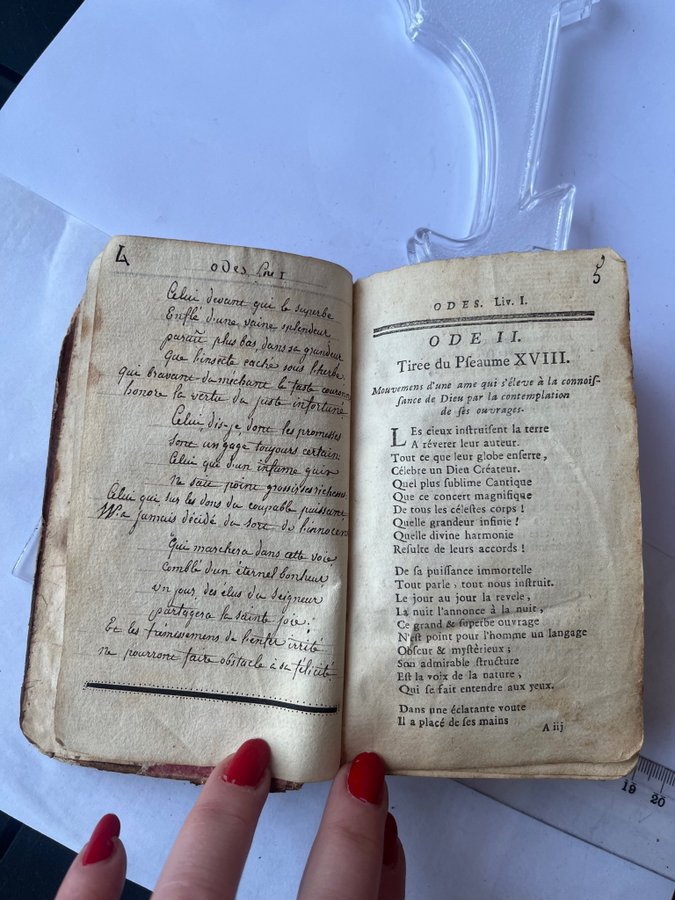 4
Odes Livre I
Celui devant qui le superbe
Enflé d'une vaine splendeur
paraît plus bas, dans sa grandeur
Que l'insecte caché sous l'herbe.
qui bravant du méchant le faste couronné
honore la vertu du juste infortuné
Celui dis-je dont les promesses
sont un gage toujours certain:
Celui qui d'un infame gain
ne sait point grossir ses richesses
Celui qui sur les dons du coupable puissant
N'a jamais décidé du sort de l'innocen
Qui marchera dans cette voie,
comblé d'un éternel bonheur
un jour, des élus du Seigneur
partagera la sainte joie;
Et les frémissemens de l'enfer irrité
ne pourront faire obstacle à sa félicité
5
ODES. Liv. I.
ODE II.
Tirée du Pſeaume XVIII.
Mouvemens d'une ame qui s'éleve à la connoiſ-
ſance de Dieu par la contemplation
de ſes ouvrages.
LEs cieux inſtruiſent la terre
A révérer leur auteur.
Tout ce que leur globe enſerre,
Célebre un Dieu Créateur.
Quel plus ſublime Cantique
Que ce concert magnifique
De tous les céleſtes corps !
Quelle grandeur infinie !
Quelle divine harmonie
Reſulte de leurs accords !
De ſa puiſſance immortelle
Tout parle, tout nous inſtruit.
Le jour au jour la revele,
La nuit l'annonce à la nuit,
Ce grand & ſuperbe ouvrage
N'eſt point pour l'homme un langage
Obſcur & myſtérieux ;
Son admirable ſtructure
Eſt la voix de la nature,
Qui ſe fait entendre aux yeux.
Dans une éclatante voute
Il a placé de ſes mains
A iij
19 20